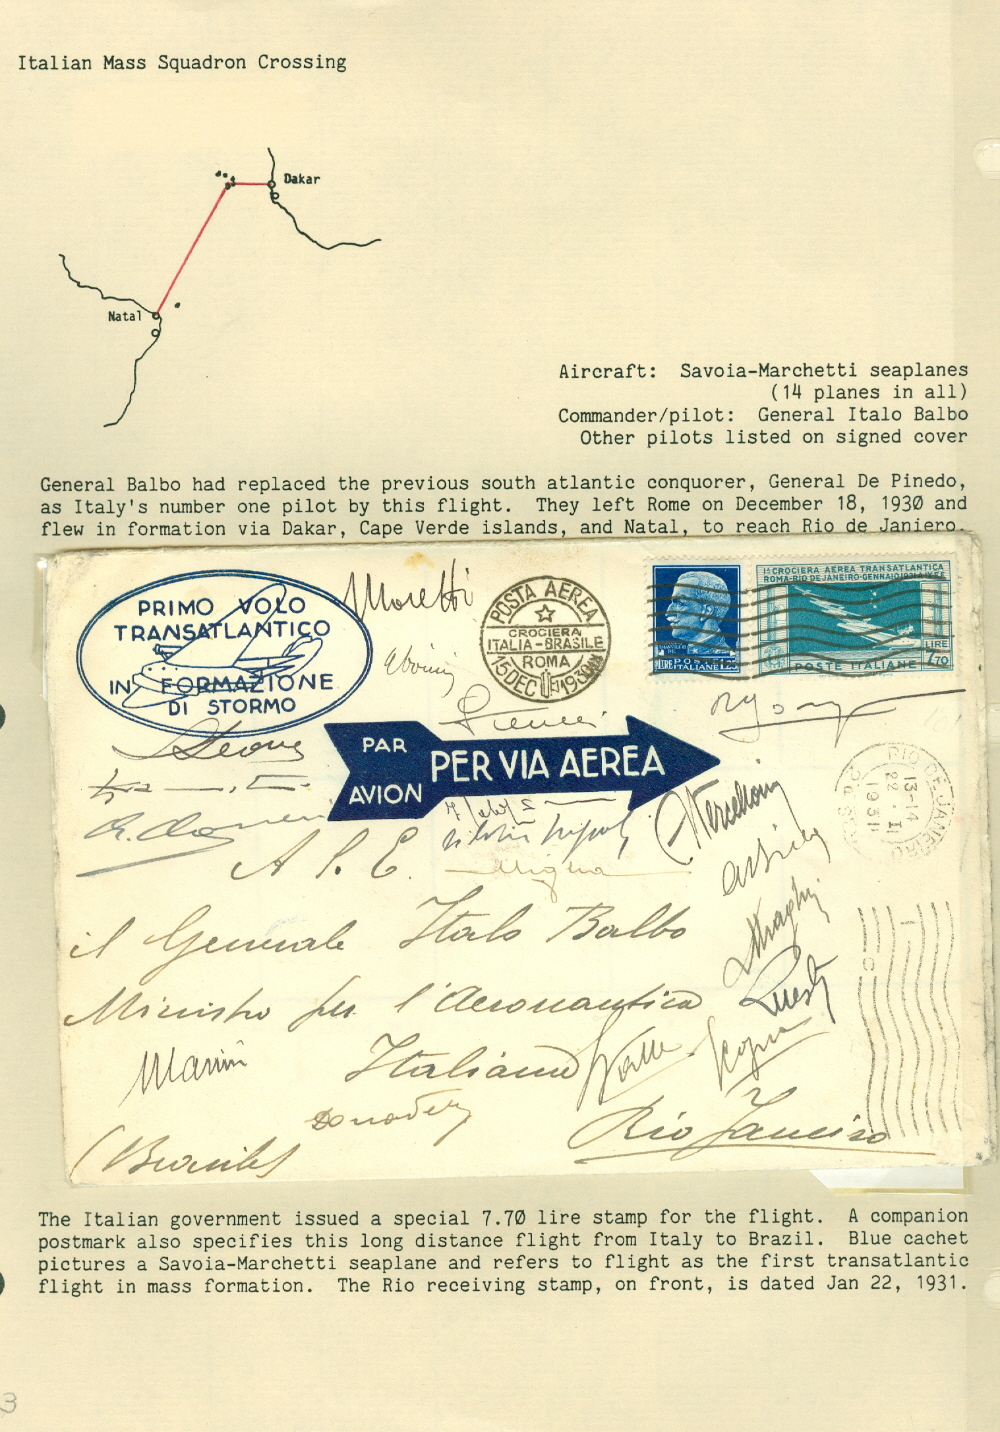 Italian Mass Squadron Crossing
Dakar
Natal
Aircraft: Savoia-Marchetti seaplanes
(14 planes in all)
Commander/pilot: General Italo Balbo
Other pilots listed on signed cover
General Balbo had replaced the previous south atlantic conquorer, General De Pinedo,
as Italy's number one pilot by this flight. They left Rome on December 18, 1930 and
flew in formation via Dakar, Cape Verde islands, and Natal, to reach Rio de Janiero.
PRIMO VOLO
TRANSATLANTICO
IN FORMAZIONE
DI STORMO
Moretti
POSTA AEREA
CROCIERA
ITALIA-BRASILE
ROMA
15 DEC 1930
POSTE
ITALIANE
1ª CROCIERA AEREA TRANSATLANTICA
ROMA-RIO DE JANEIRO-GENNAIO 1931
LIRE
7.70
POSTE ITALIANE
PAR
AVION
PER VIA AEREA
RIO DE JANEIRO
13-14
22 . I
1931
A S. E.
il Generale Italo Balbo
Ministro per l'Aeronautica
Italiana
Marini
Donadelli
Draghelli
Valle
Rio Janeiro
(Brasile)
The Italian government issued a special 7.70 lire stamp for the flight. A companion
postmark also specifies this long distance flight from Italy to Brazil. Blue cachet
pictures a Savoia-Marchetti seaplane and refers to flight as the first transatlantic
flight in mass formation. The Rio receiving stamp, on front, is dated Jan 22, 1931.
3